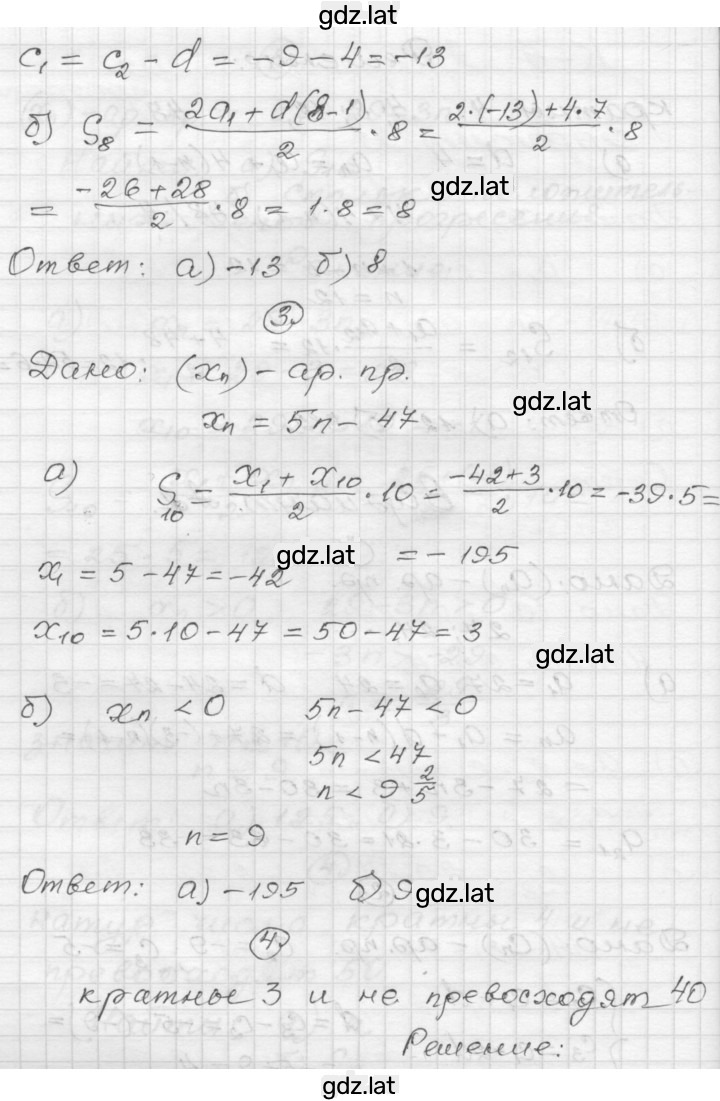 gdz.lat
c₁ = c₂ - d = -9 - 4 = -13
б) S₈ = (2a₁ + d(8-1))/2 · 8 = (2·(-13)+4·7)/2 · 8
= (-26+28)/2 · 8 = 1·8 = 8
gdz.lat
Ответ: а) -13 б) 8
3.
Дано: (xₙ) - ар. пр.
gdz.lat
xₙ = 5n - 47
а) S₁₀ = (x₁ + x₁₀)/2 · 10 = (-42+3)/2 · 10 = -39·5 =
= -195
gdz.lat
x₁ = 5 - 47 = -42
x₁₀ = 5·10 - 47 = 50 - 47 = 3
gdz.lat
б) xₙ < 0 5n - 47 < 0
5n < 47
n < 9 2/5
n = 9
Ответ: а) -195 б) 9
gdz.lat
4.
кратные 3 и не превосходят 40
Решение:
gdz.lat